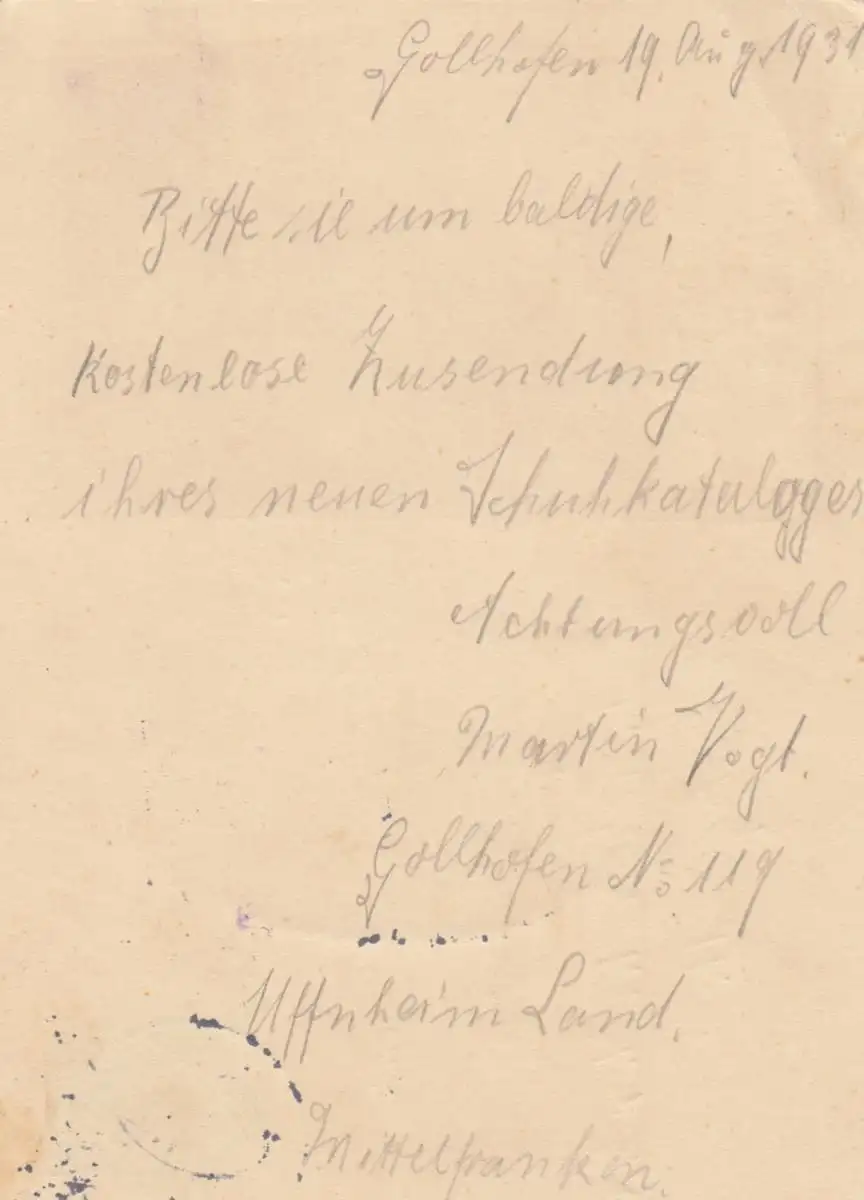 Gollhofen 19. Aug. 1931
Bitte sie um baldige,
kostenlose Zusendung
ihres neuen Schuhkatalogges
Achtungsvoll
Martin Vogt.
Gollhofen No 119
Uffnheim Land.
Mittelfranken.